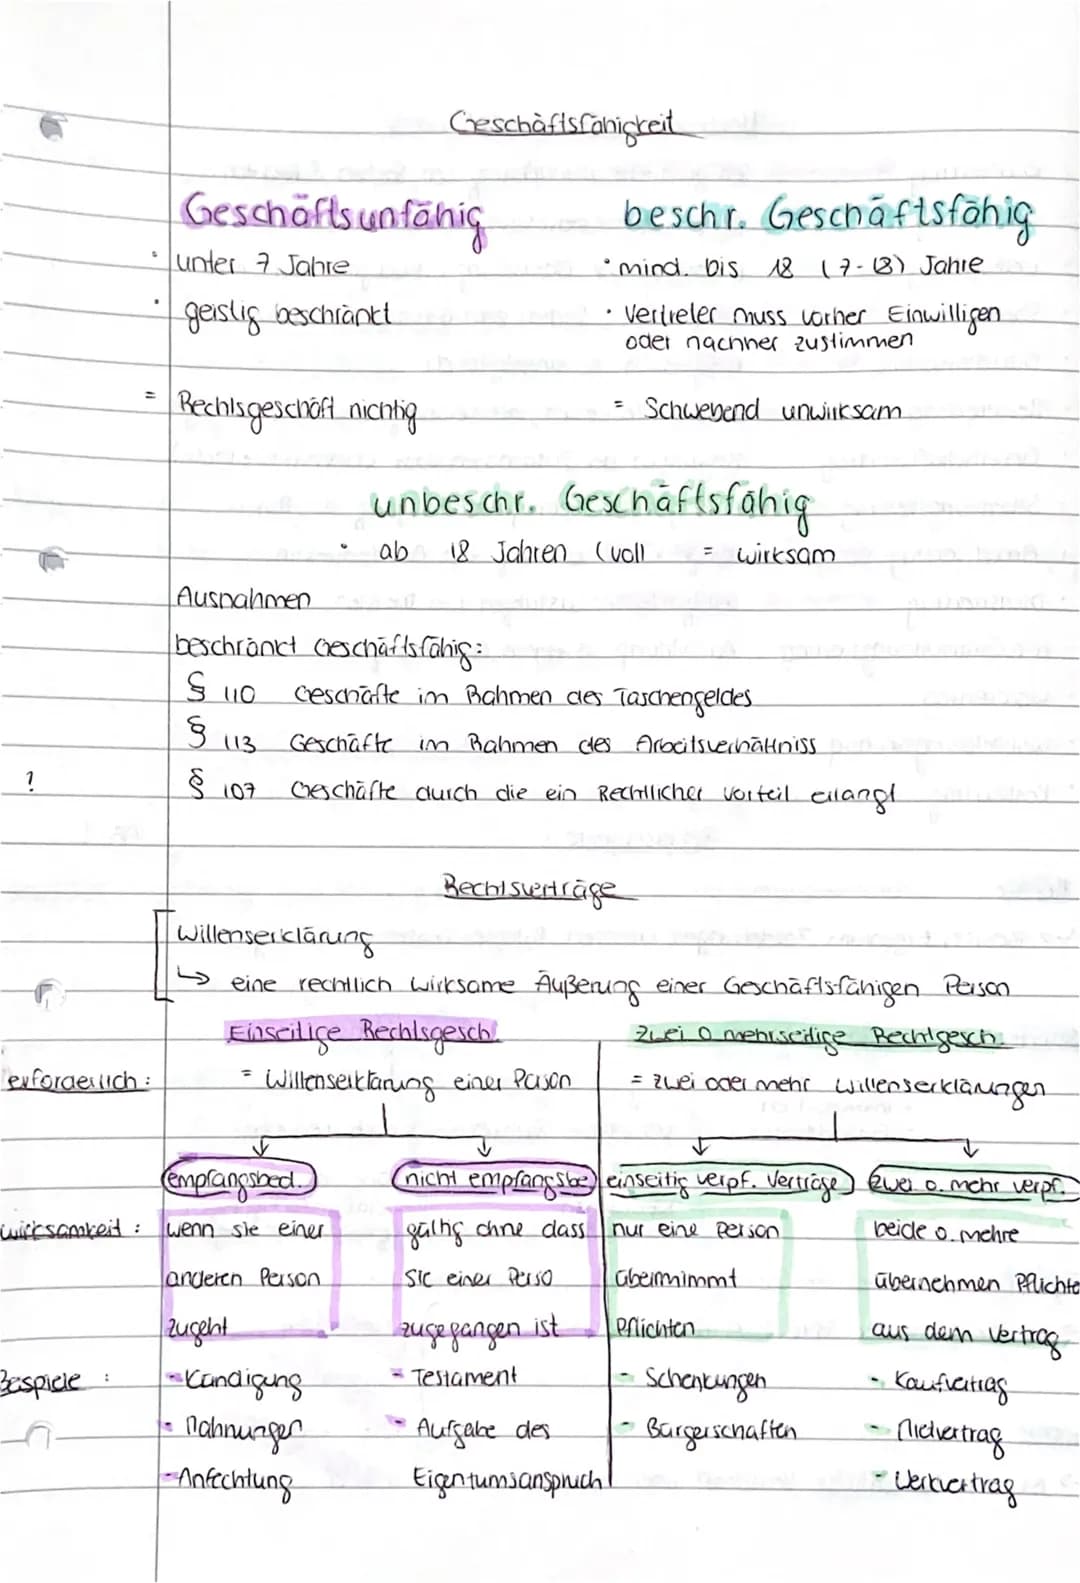 Geschäftsfähigkeit
Geschäftsunfähig
beschr. Geschäftsfähig
• unter 7 Jahre
• mind. bis 18 (7-18) Jahre
• geistig beschränkt
• Vertreter muss vorher Einwilligen
oder nachher zustimmen
= Rechtsgeschäft nichtig
= Schwebend unwirksam
unbeschr. Geschäftsfähig
• ab 18 Jahren (voll = wirksam
Ausnahmen
beschränkt Geschäftsfähig:
§ 110 Geschäfte im Rahmen des Taschengeldes
§ 113 Geschäfte im Rahmen des Arbeitsverhältniss
? § 107 Geschäfte durch die ein Rechtlicher Vorteil erlangt
Rechtsverträge
Willenserklärung
↳ eine rechtlich wirksame Äußerung einer Geschäftsfähigen Person
Einseitige Rechtsgesch.
zwei o mehrseitige Rechtgesch.
erforderlich:
= Willenserklärung einer Person
= zwei oder mehr Willenserklärungen
empfangsbed.
nicht empfangsbe
einseitig verpf. Verträge
zwei o. mehr verpf.
wirksamkeit: wenn sie einer
anderen Person
zugeht
gültig ohne dass
sie einer Perso
zugegangen ist
nur eine Person
übernimmt
Pflichten
beide o. mehre
übernehmen Pflichte
aus dem Vertrag
Bespiele :
- Kündigung
- Mahnungen
- Anfechtung
- Testament
- Aufgabe des
Eigentumsanspruch
- Schenkungen
- Bürgerschaften
- Kaufvertrag
- Mietvertrag
- Werkvertrag